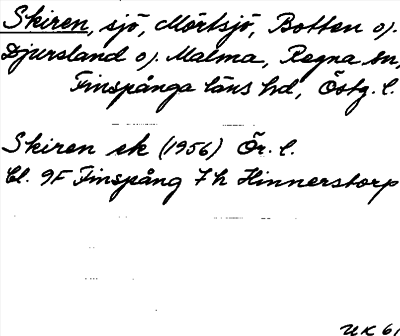 Skiren, sjö, Mörtsjö, Botten o.
Djursland o. Malma, Regna sn,
Finspånga läns hd, Östg. l.
Skiren ek (1956) Ör. l.
bl. 9F Finspång 7h Hinnerstorp
UK 61